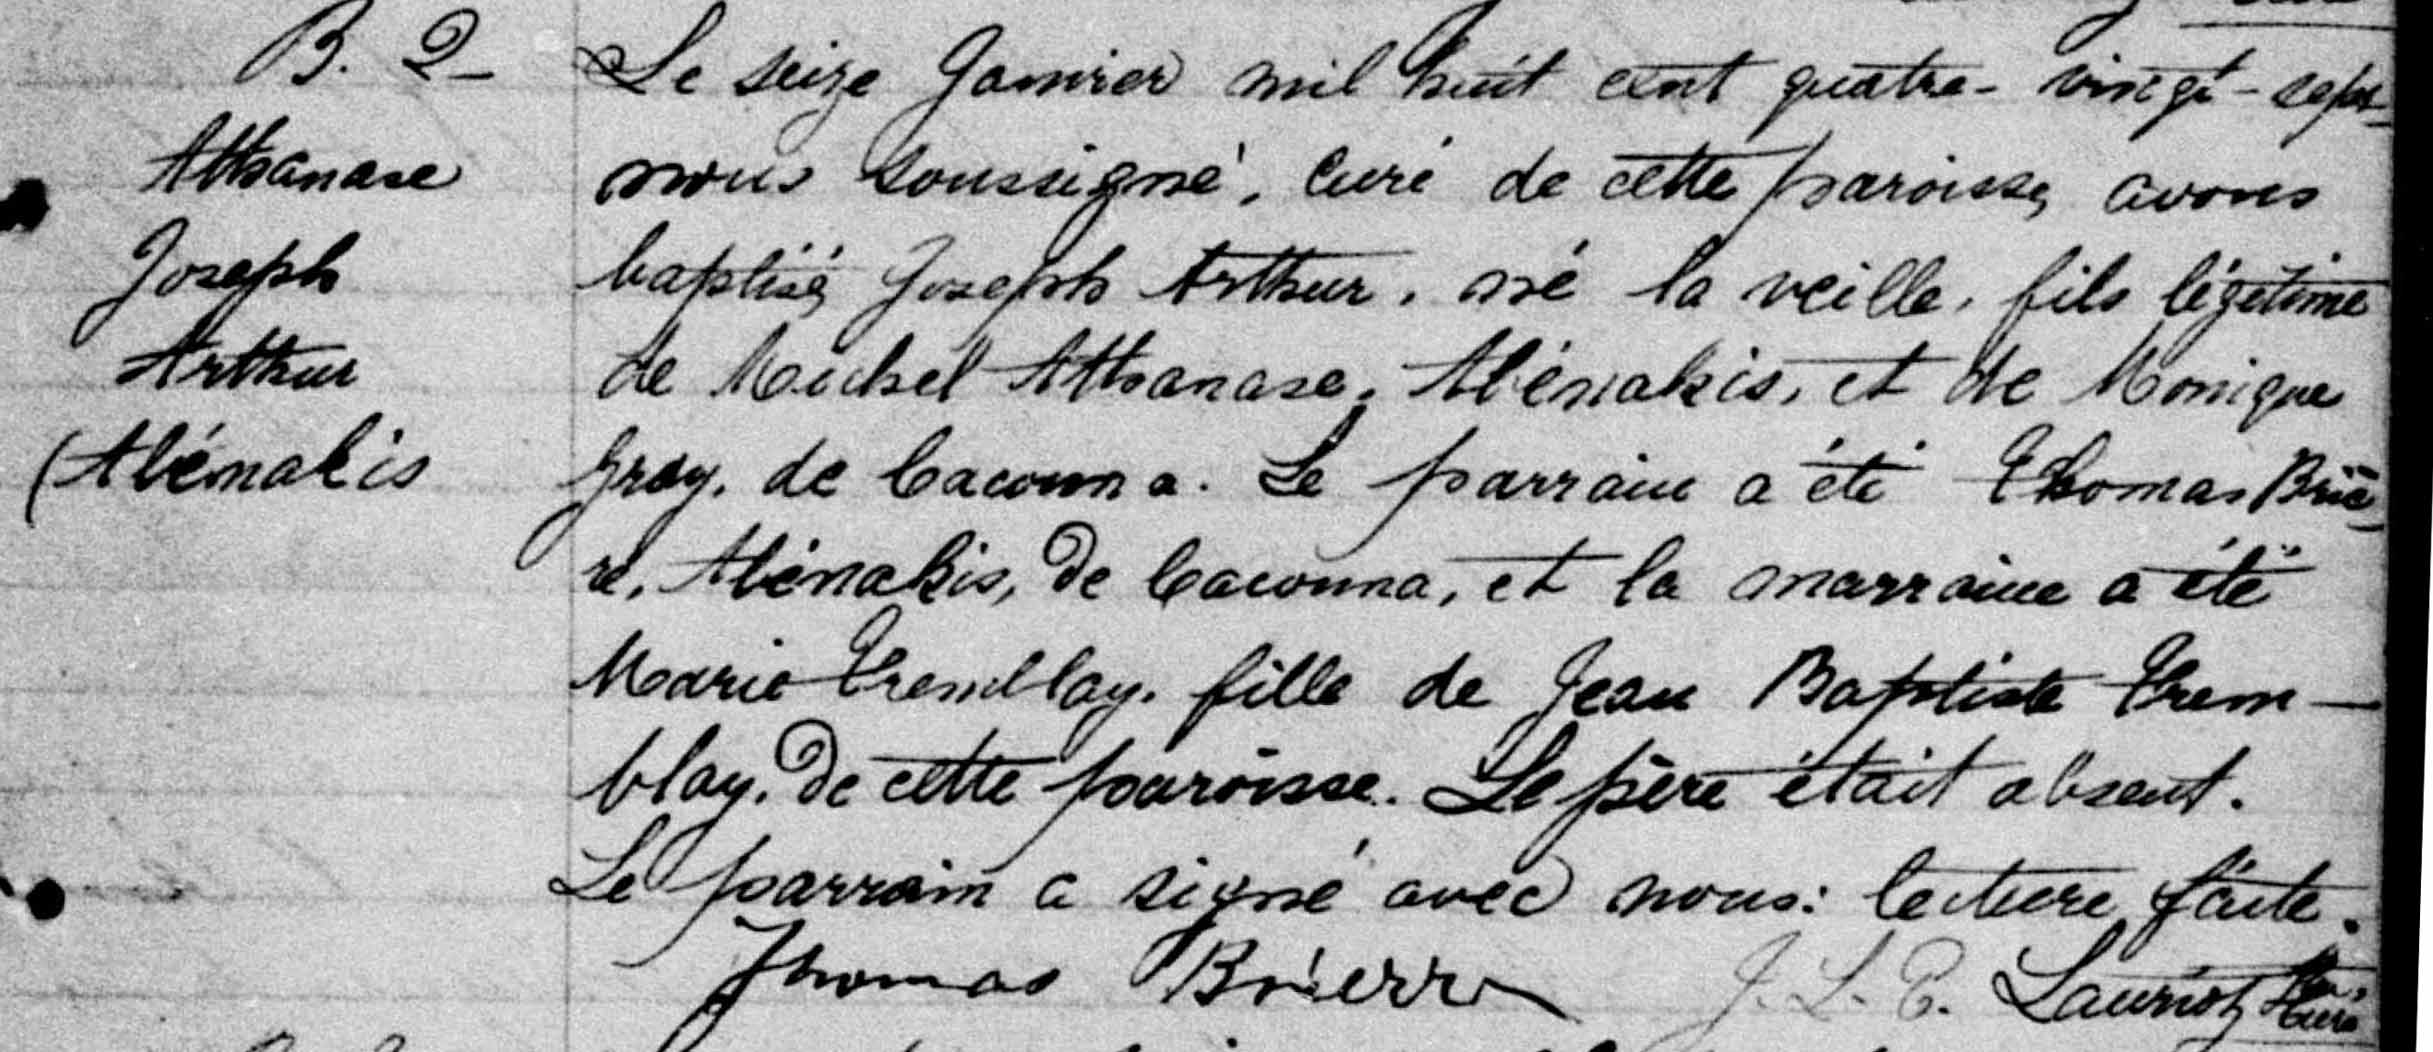 B. 2
Athanase
Joseph
Arthur
(Abénakis
Le seize Janvier mil huit cent quatre-vingt-sept
nous soussigné, curé de cette paroisse, avons
baptisé, Joseph Arthur, né la veille, fils légitime
de Michel Athanase, Abénakis, et de Monique
Gray, de Cacouna. Le parrain a été Thomas Briè-
re, Abénakis, de Cacouna, et la marraine a été
Marie Tremblay, fille de Jean Baptiste Trem-
blay, de cette paroisse. Le père était absent.
Le parrain a signé avec nous: lecture faite.
Thomas Brierre J. L. P. Lauriot, Ptre, Curé